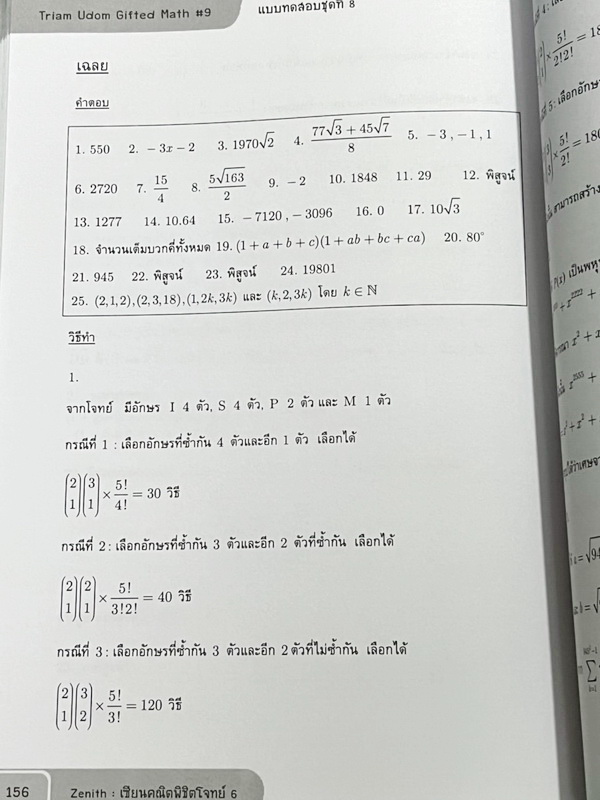 Triam Udom Gifted Math #9
แบบทดสอบชุดที่ 8
เฉลย
คำตอบ
1. 550 2. −3x − 2 3. 1970√2 4. (77√3 + 45√7)/8 5. −3 , −1 , 1
6. 2720 7. 15/4 8. 5√163/2 9. −2 10. 1848 11. 29 12. พิสูจน์
13. 1277 14. 10.64 15. −7120 , −3096 16. 0 17. 10√3
18. จำนวนเต็มบวกคี่ทั้งหมด 19. (1 + a + b + c)(1 + ab + bc + ca) 20. 80°
21. 945 22. พิสูจน์ 23. พิสูจน์ 24. 19801
25. (2,1,2),(2,3,18),(1,2k,3k) และ (k,2,3k) โดย k ∈ ℕ
วิธีทำ
1.
จากโจทย์ มีอักษร I 4 ตัว, S 4 ตัว, P 2 ตัว และ M 1 ตัว
กรณีที่ 1 : เลือกอักษรที่ซ้ำกัน 4 ตัวและอีก 1 ตัว เลือกได้
(2 1)(3 1) × 5!/4! = 30 วิธี
กรณีที่ 2 : เลือกอักษรที่ซ้ำกัน 3 ตัวและอีก 2 ตัวที่ซ้ำกัน เลือกได้
(2 1)(2 1) × 5!/3!2! = 40 วิธี
กรณีที่ 3 : เลือกอักษรที่ซ้ำกัน 3 ตัวและอีก 2 ตัวที่ไม่ซ้ำกัน เลือกได้
(2 1)(3 2) × 5!/3! = 120 วิธี
156 Zenith : เซียนคณิตพิชิตโจทย์ 6